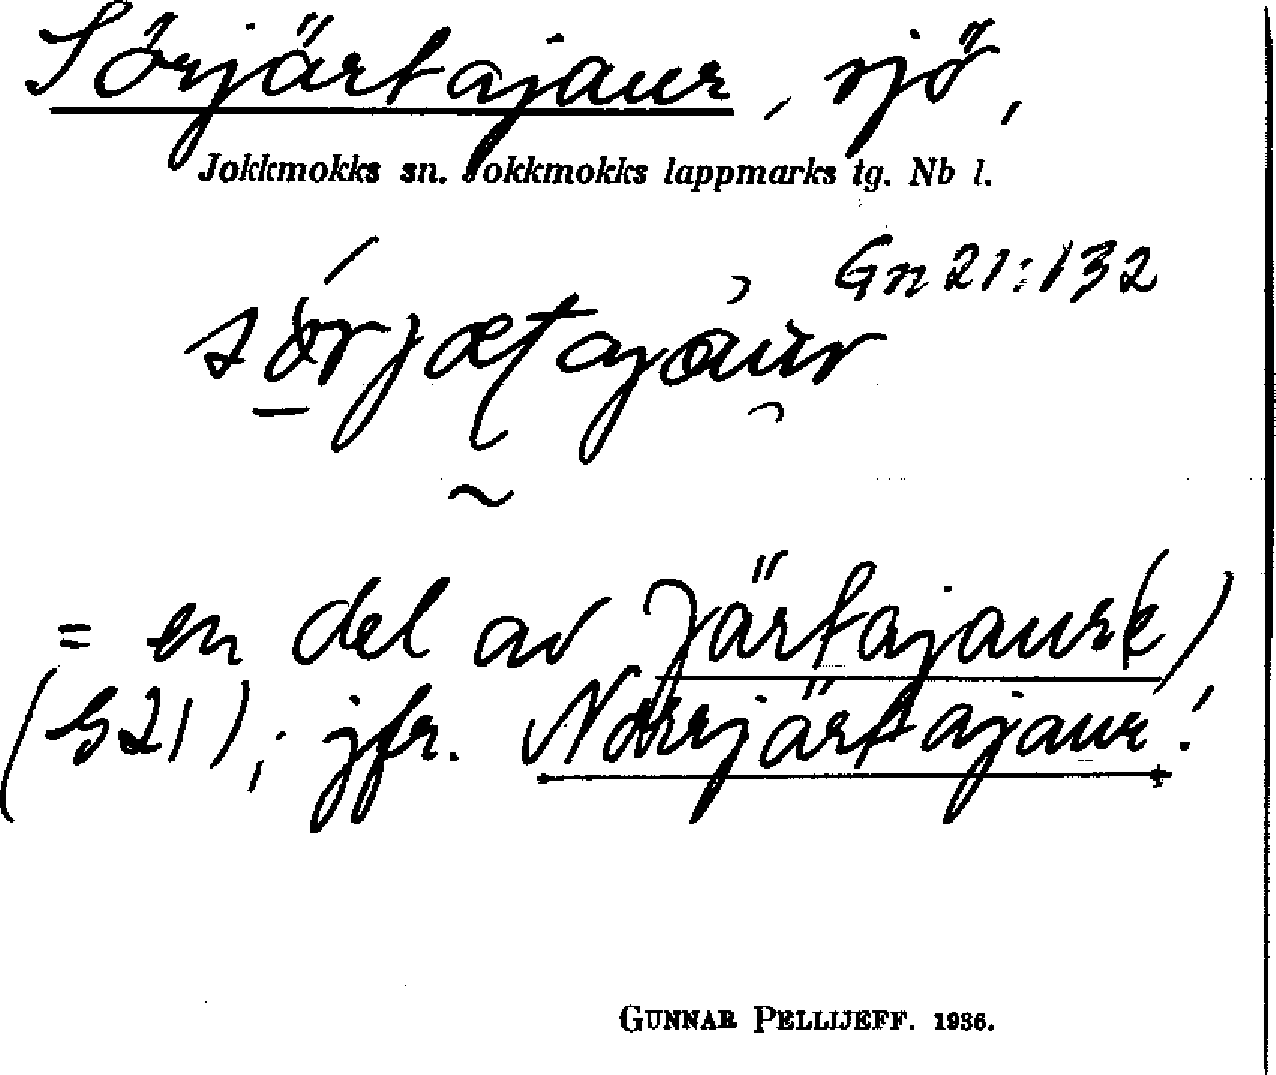 Sörjärtajaur, sjö,
Jokkmokks sn. Jokkmokks lappmarks tg. Nb l.
Gn 21:132
= en del av Järtajaur(e)
(G21); jfr. Norrjärtajaur!
GUNNAR PELLIJEFF. 1936.